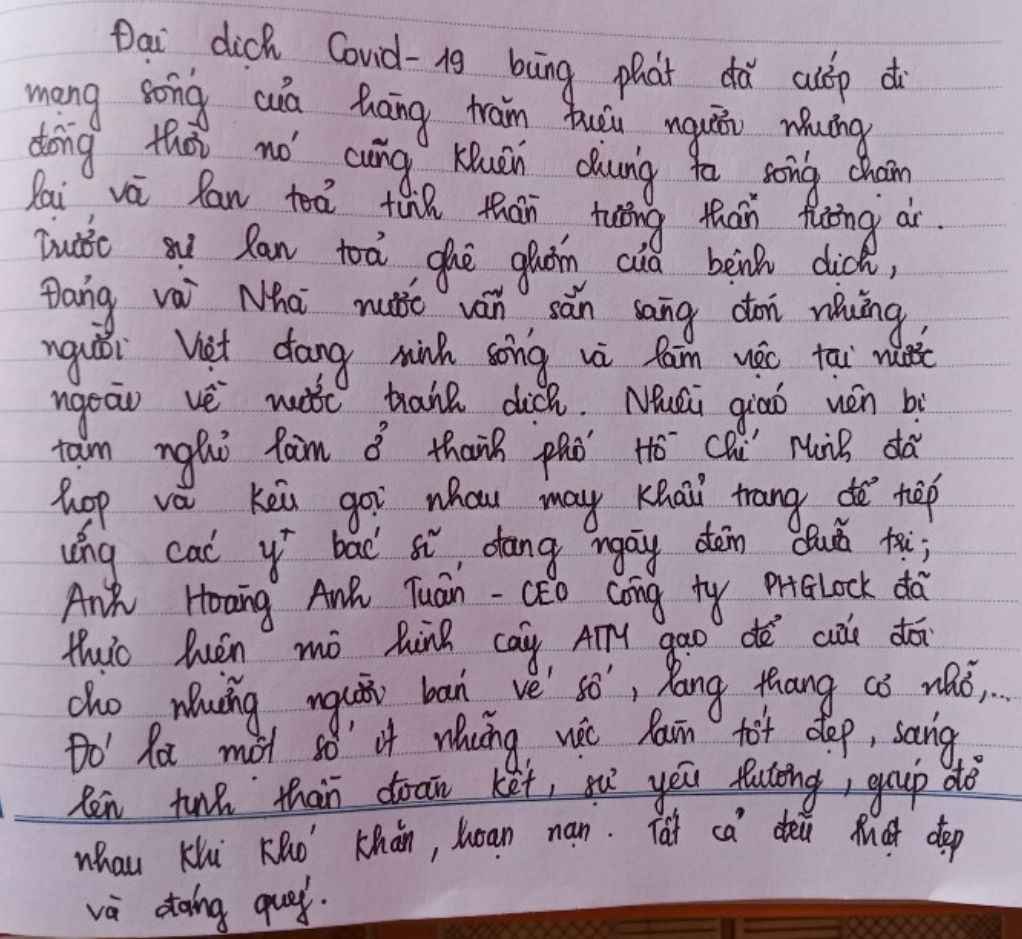 Đại dịch Covid-19 bùng phát đã cướp đi
mạng sống của hàng trăm triệu người nhưng
đồng thời nó cũng khiến chúng ta sống chậm
lại và lan toả tinh thần tương thân tương ái.
Trước sự lan toả ghê ghớm của bệnh dịch,
Đảng và Nhà nước vẫn sẵn sàng đón những
người Việt đang sinh sống và làm việc tại nước
ngoài về nước tránh dịch. Nhiều giáo viên bị
tạm nghỉ làm ở thành phố Hồ Chí Minh đã
họp và kêu gọi nhau may khẩu trang để tiếp
ứng các y bác sĩ đang ngày đêm chữa trị;
Anh Hoàng Anh Tuấn - CEO công ty PHGLock đã
thực hiện mô hình cây ATM gạo để cứu đói
cho những người bán vé số, lang thang cơ nhỡ,...
Đó là một số ít những việc làm tốt đẹp, sáng
lên tinh thần đoàn kết, sự yêu thương, giúp đỡ
nhau khi khó khăn, hoạn nạn. Tất cả đều thật đẹp
và đáng quý.